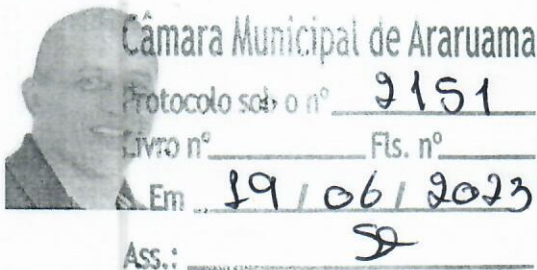 Câmara Municipal de Araruama
Protocolo sob o nº 2151
Livro nº Fls. nº
Em 19 / 06 / 2023
Ass.: